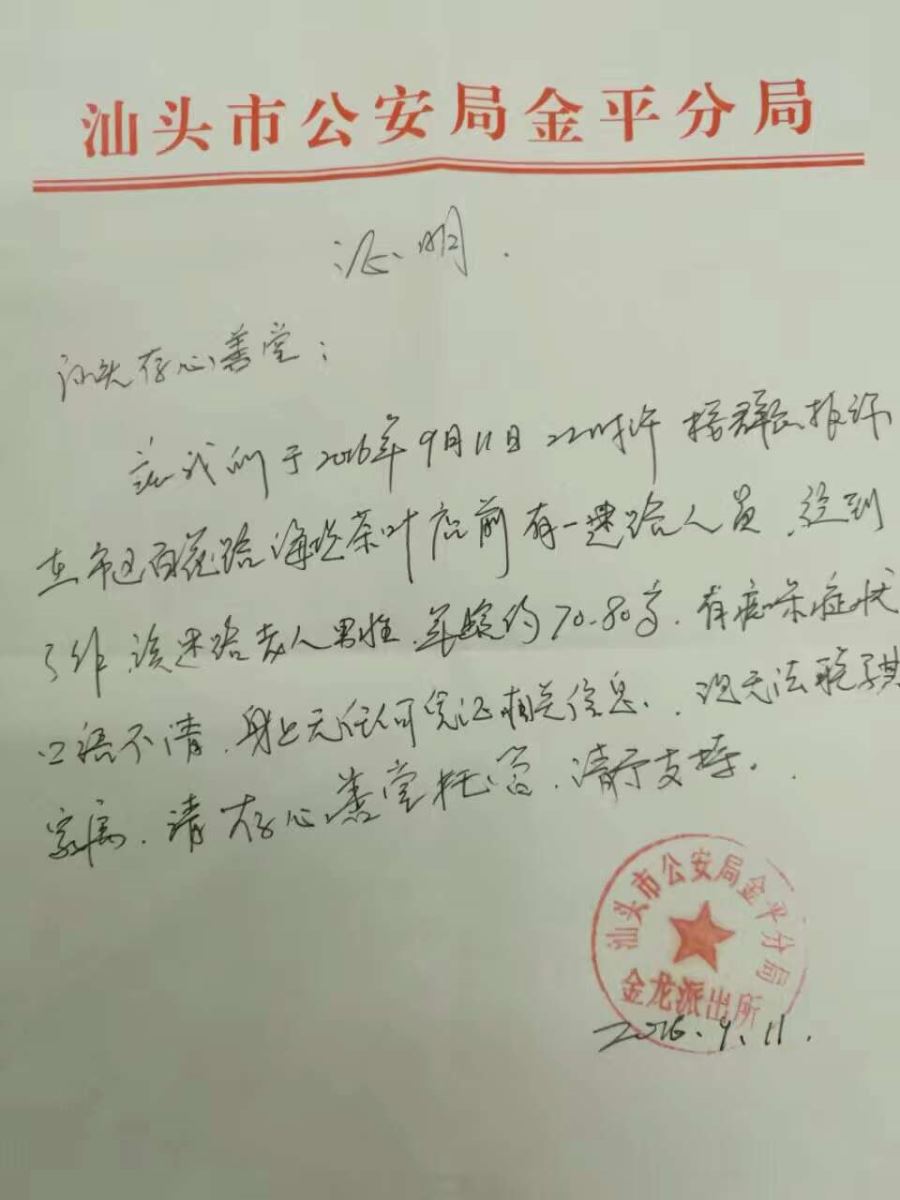 汕头市公安局金平分局
证明.
汕头存心善堂:
兹我所于2016年9月11日22时许接群众报称
在市区百花路海边茶叶店前有一迷路人员,经到
了解,该迷路老人男性,年龄约70-80岁,有痴呆症状
口语不清,身上无任何凭证相关信息.现无法联系其
家属,请存心善堂托管,请予支持.
汕头市公安局金平分局
金龙派出所
2016.9.11.